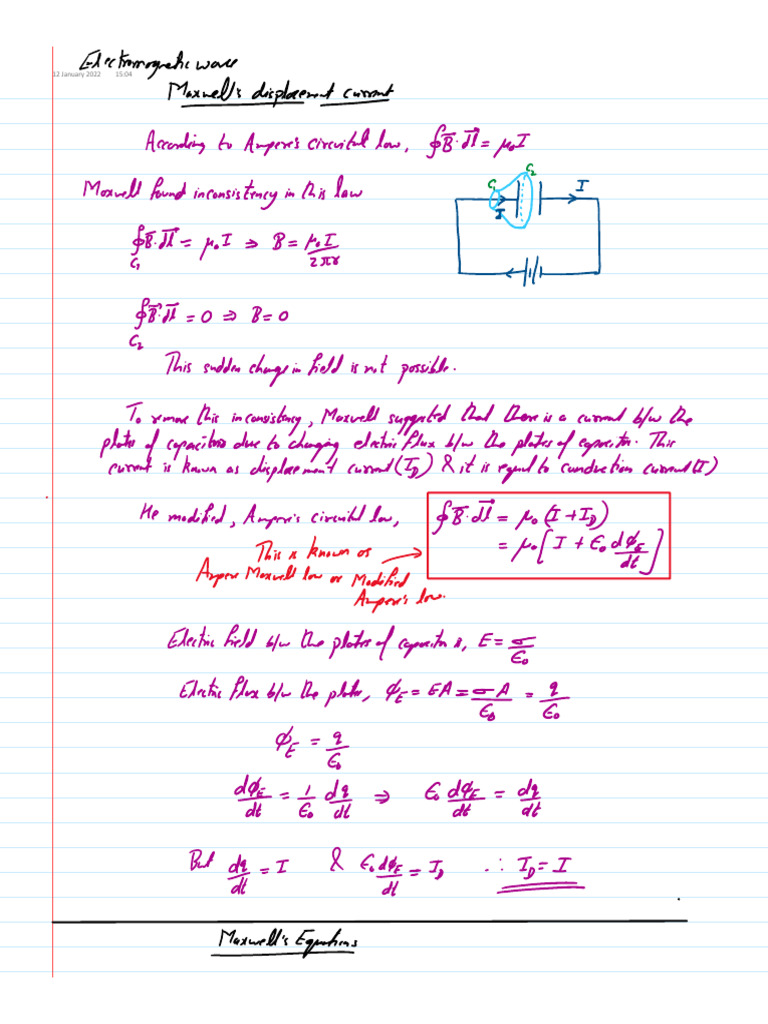 Electromagnetic wave
12 January 2022 15:04
Maxwell's displacement current
According to Ampere's circuital law, ∮B⃗·dl⃗ = μ₀I
C₁ C₂ I
Maxwell found inconsistency in this law
I
∮B⃗·dl⃗ = μ₀I ⇒ B = μ₀I/2πr
C₁
∮B⃗·dl⃗ = 0 ⇒ B = 0
C₂
This sudden change in field is not possible.
To remove this inconsistency, Maxwell suggested that there is a current b/w the
plates of capacitors due to changing electric flux b/w the plates of capacitor. This
current is known as displacement current (I_D) & it is equal to conduction current (I)
He modified, Ampere's circuital law, ∮B⃗·dl⃗ = μ₀(I + I_D)
= μ₀[I + ε₀ dφ_E/dt]
This is known as
Ampere Maxwell law or Modified
Ampere's law.
Electric field b/w the plates of capacitor is, E = σ/ε₀
Electric flux b/w the plates, φ_E = EA = σA/ε₀ = q/ε₀
φ_E = q/ε₀
dφ_E/dt = 1/ε₀ dq/dt ⇒ ε₀ dφ_E/dt = dq/dt
But dq/dt = I & ε₀ dφ_E/dt = I_D ∴ I_D = I
Maxwell's Equations